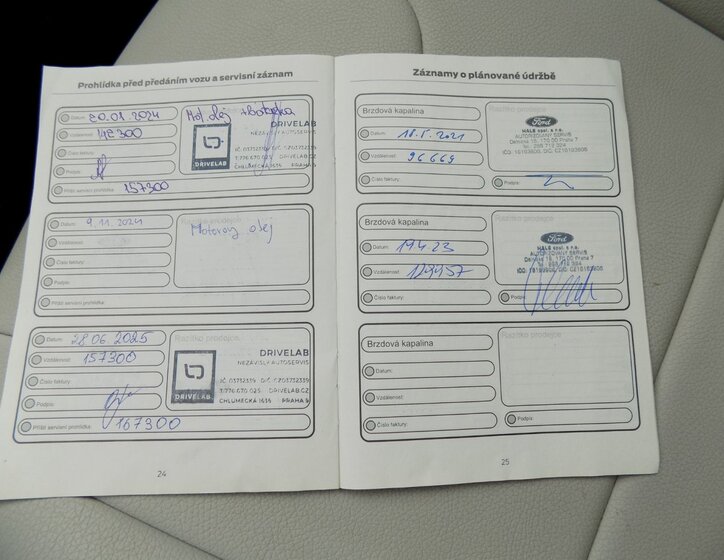 Prohlídka před předáním vozu a servisní záznam
Datum: 20.01 2024
Mot olej +
Vzdálenost: 142300
Číslo faktury:
Podpis:
DRIVELAB
NEZÁVISLÝ AUTOSERVIS
DRIVELAB
IČ 03732339 DIČ CZ03732339
T:776 670 025 DRIVELAB.CZ
CHLUMECKÁ 1635 PRAHA 9
Příští servisní prohlídka: 157300
Datum: 9.11.2024
Razítko prodejce
Motorový olej
Vzdálenost:
Číslo faktury:
Podpis:
Příští servisní prohlídka:
Datum: 28.06 2025
Razítko prodejce
Vzdálenost: 157300
Číslo faktury:
Podpis:
DRIVELAB
NEZÁVISLÝ AUTOSERVIS
DRIVELAB
IČ 03732339 DIČ CZ03732339
T:776 670 025 DRIVELAB.CZ
CHLUMECKÁ 1635 PRAHA 9
Příští servisní prohlídka: 167300
24
Záznamy o plánované údržbě
Brzdová kapalina
Datum:
Vzdálenost: 96669
Číslo faktury:
Podpis:
Ford
HALE spol. s r.o.
AUTORIZOVANÝ SERVIS
Dělnická 15, 170 00 Praha 7
Brzdová kapalina
Razítko prodejce
Datum: 19.4.23
Vzdálenost:
Číslo faktury:
Podpis:
Ford
HALE spol. s r.o.
AUTORIZOVANÝ SERVIS
Dělnická 15, 170 00 Praha 7
Brzdová kapalina
Razítko prodejce
Datum:
Vzdálenost:
Číslo faktury:
Podpis:
25